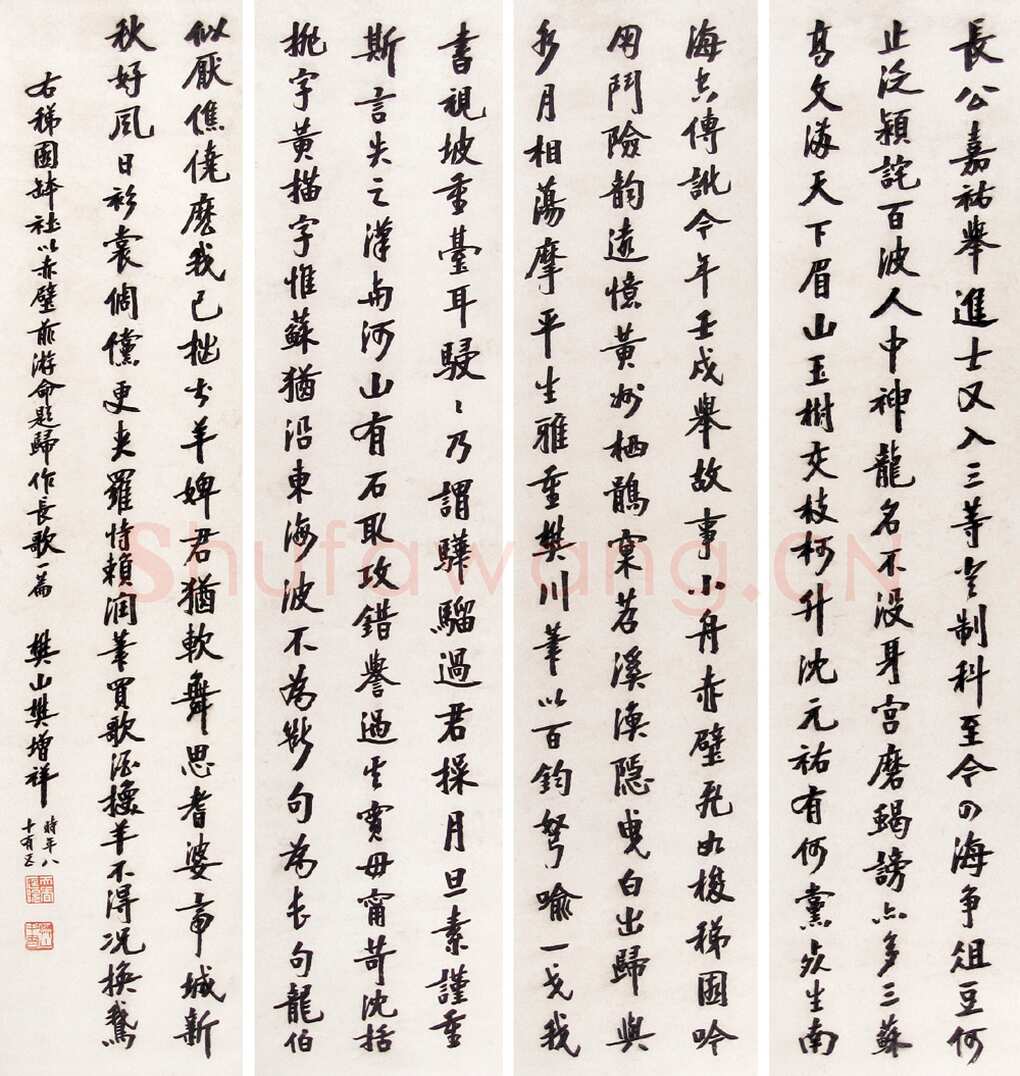 長公嘉祐舉進士又入三等空制科至今四海爭俎豆何
止泛潁詫百波人中神龍名不沒身宮磨蝎謗亦多三蘇
高文滿天下眉山玉樹交枝柯升沈元祐有何黨死生南
海空傳訛今年壬戌舉故事小舟赤壁飛如梭稊園吟
用鬥險韵遠憶黃州栖鶻窠苕溪漁隱曳白出歸與
水月相蕩摩平生雅重樊川筆以百鈞弩喻一戈我
書視坡重臺耳駸〻乃謂驊騮過君操月旦素謹重
斯言失之漢與河山有石取攻錯譽過其實毋甯苛沈括
挑字黃描字惟蘇猶沿東海波不為斷句為長句龍伯
似厭僬僥麼我已拙出羊婢君猶軟舞思耆婆帝城新
秋好風日衫裳倜儻更夾羅恃賴潤筆買歌酒擾羊不得况換鵝
右稊園鉢社以赤壁前游命題歸作長歌一篇 樊山樊增祥
時年八
十有五
Shufawang.CN